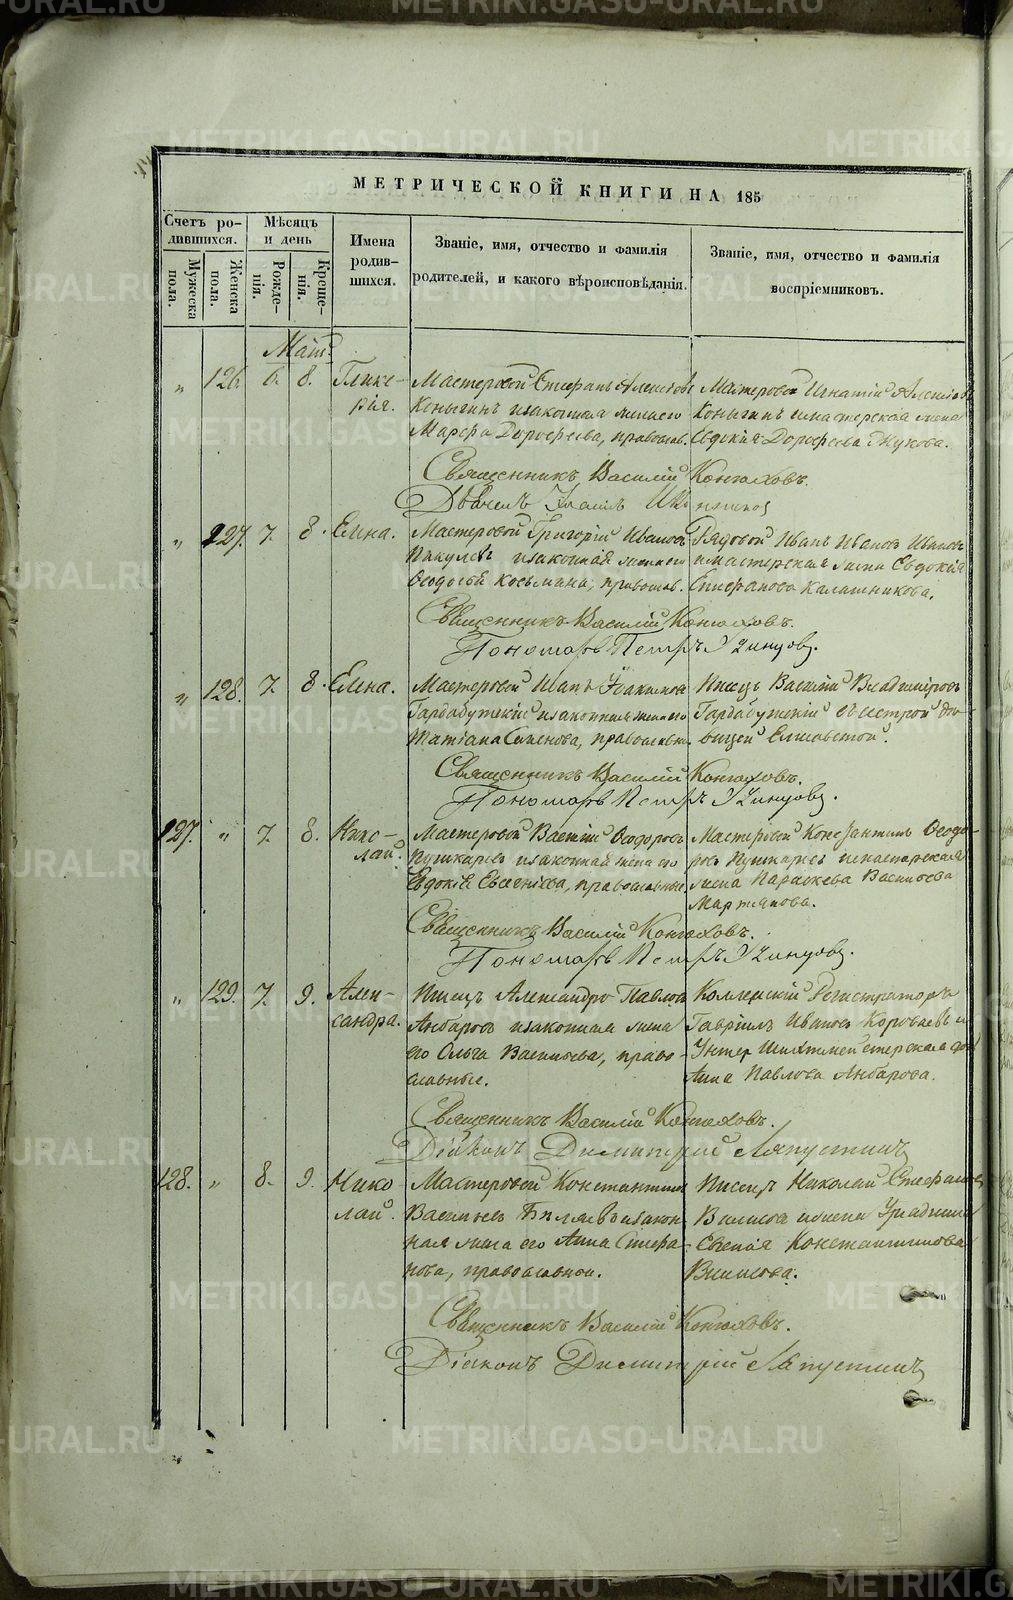 METRIKI.GASO-URAL.RU
МЕТРИЧЕСКОЙ КНИГИ НА 185
Счетъ родившихся.
Мужеска пола.
Женска пола.
Мѣсяцъ и день
Рожденія.
Крещенія.
Имена родившихся.
Званіе, имя, отчество и фамилія родителей, и какого вѣроисповѣданія.
Званіе, имя, отчество и фамилія воспріемниковъ.
„ 126. 6. 8. Глике-
рія.
Мастеровой Стефанъ Алексѣевъ
Коныгинъ и законная жена его
Марѳа Дороѳеева, правослов.
Мастеровой Игнатій Алексѣевъ
Коныгинъ и мастерская жена
Евдокія Дороѳеева Жукова.
Священникъ Василій Конюховъ.
„ 127. 7. 8. Елена.
Мастеровой Григорій Ивановъ
и законная жена его
Ѳеодосья Косьмина, правослов.
Рядовой Иванъ Ивановъ
и мастерская жена Евдокія
Стефанова Калашникова.
Священникъ Василій Конюховъ.
Пономарь Петръ Учинцовъ.
„ 128. 7. 8. Елена.
Мастеровой Иванъ
Гардабутскій и законная жена его
Татіана Семенова, православн.
Писецъ Василій Владиміровъ
Гардабутскій съ сестрой дѣ-
вицей Елисаветой.
Священникъ Василій Конюховъ.
Пономарь Петръ Учинцовъ.
127. „ 7. 8. Нико-
лай.
Мастеровой Василій Ѳеодоровъ
Пушкаревъ и законная жена его
Евдокія Евсевіева, православные
Мастеровой Константинъ Ѳеодо-
ровъ Пушкаревъ и мастерская
жена Параскева Васильева
Мартьянова.
Священникъ Василій Конюховъ.
Пономарь Петръ Учинцовъ.
„ 129. 7. 9. Алек-
сандра.
Писецъ Александръ Павловъ
Анбаровъ и законная жена
его Ольга Васильева, право-
славные.
Коллежскій Регистраторъ
Гавріилъ Ивановъ Короваевъ и
Унтер Шихтмейстерская дочь
Анна Павлова Анбарова.
Священникъ Василій Конюховъ.
Діаконъ Димитрій Ляпустинъ
128. „ 8. 9. Нико
лай.
Мастеровой Константинъ
Васильевъ Бѣляевъ и закон
ная жена его Анна Стефа-
нова, православнои.
Писецъ Николай Стефановъ
и жена Урядника
Евгенія Константинова
Священникъ Василій Конюховъ.
Діаконъ Димитрій Ляпустинъ